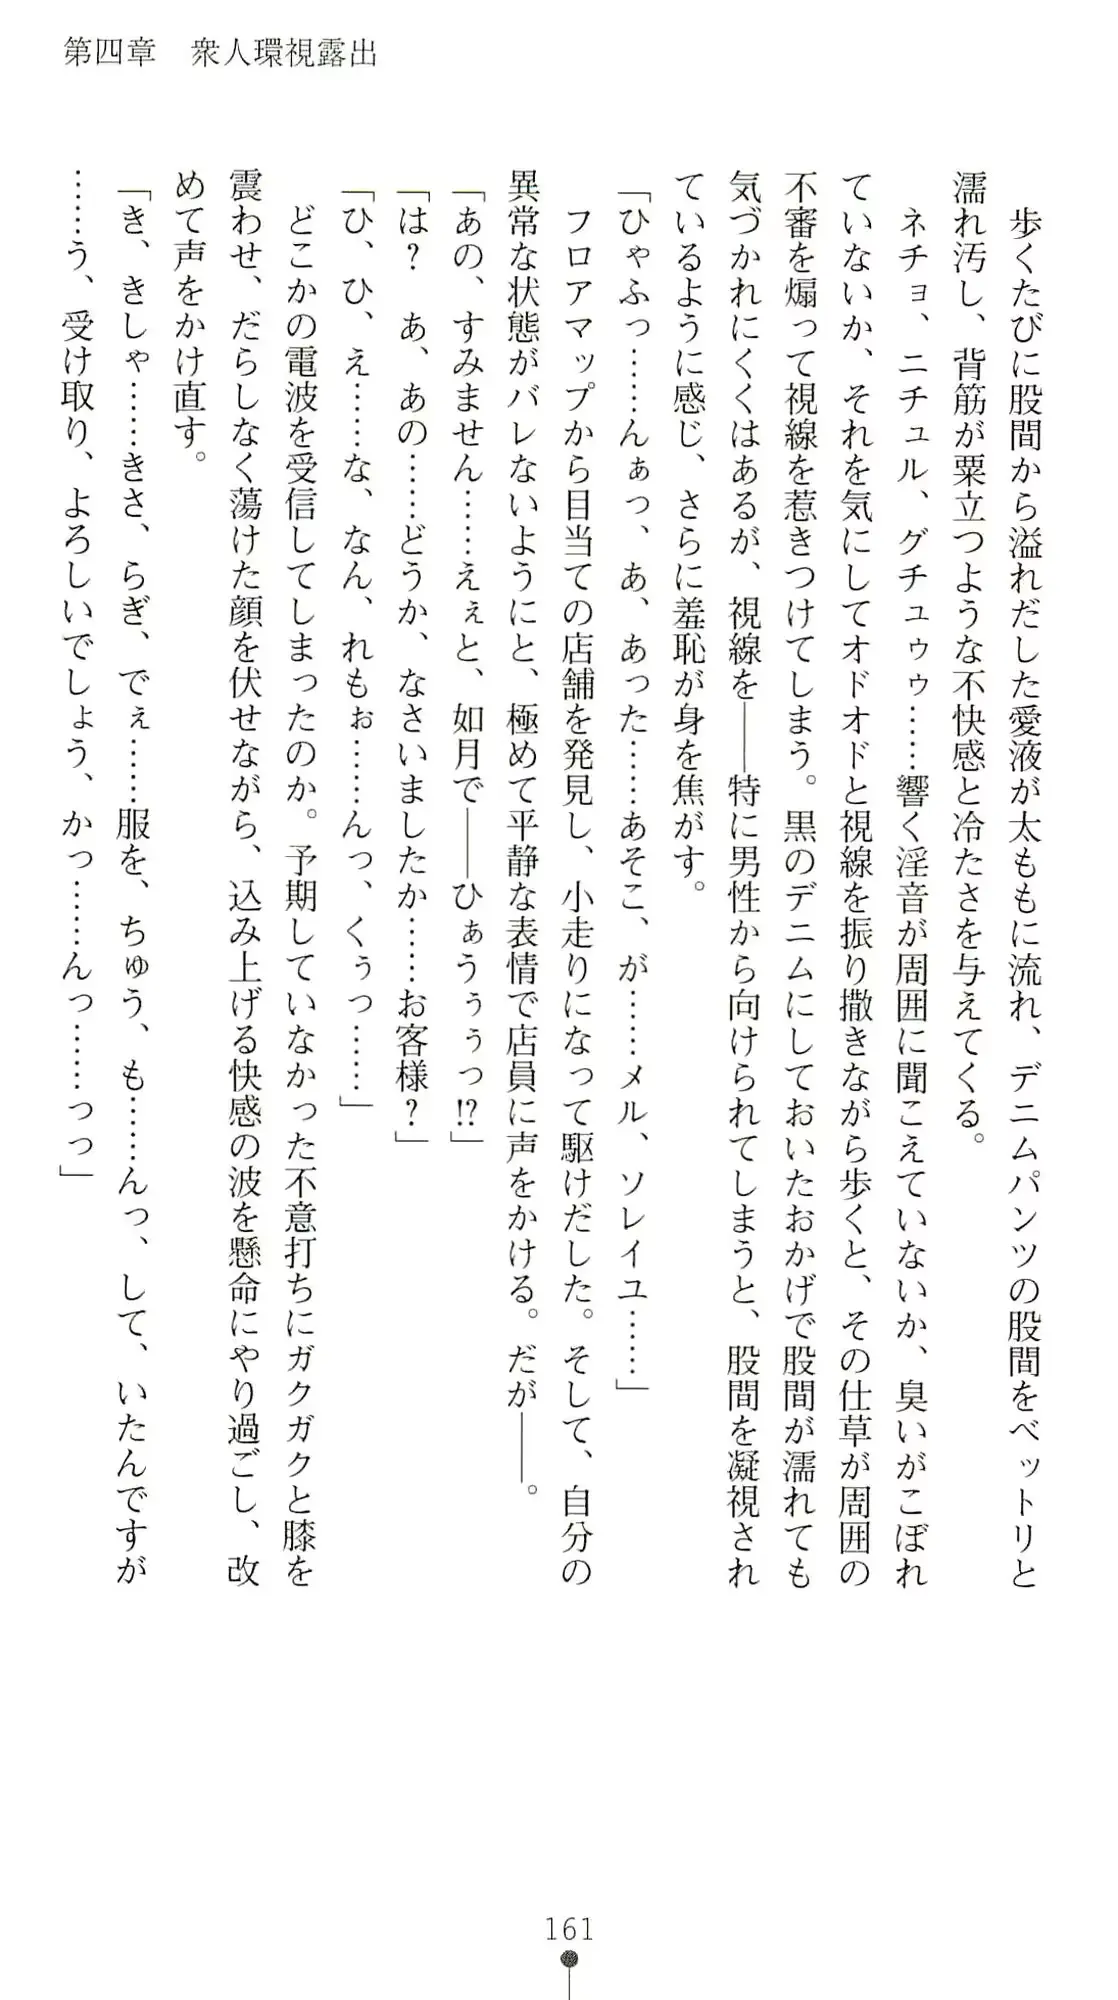 第四章　衆人環視露出
歩くたびに股間から溢れだした愛液が太ももに流れ、デニムパンツの股間をベットリと
濡れ汚し、背筋が粟立つような不快感と冷たさを与えてくる。
ネチョ、ニチュル、グチュゥゥ……響く淫音が周囲に聞こえていないか、臭いがこぼれ
ていないか、それを気にしてオドオドと視線を振り撒きながら歩くと、その仕草が周囲の
不審を煽って視線を惹きつけてしまう。黒のデニムにしておいたおかげで股間が濡れても
気づかれにくくはあるが、視線を――特に男性から向けられてしまうと、股間を凝視され
ているように感じ、さらに羞恥が身を焦がす。
「ひゃふっ……んぁっ、あ、あった……あそこ、が……メル、ソレイユ……」
フロアマップから目当ての店舗を発見し、小走りになって駆けだした。そして、自分の
異常な状態がバレないようにと、極めて平静な表情で店員に声をかける。だが――。
「あの、すみません……えぇと、如月で――ひぁうぅぅっ!?」
「は？　あ、あの……どうか、なさいましたか……お客様？」
「ひ、ひ、え……な、なん、れもぉ……んっ、くぅっ……」
どこかの電波を受信してしまったのか。予期していなかった不意打ちにガクガクと膝を
震わせ、だらしなく蕩けた顔を伏せながら、込み上げる快感の波を懸命にやり過ごし、改
めて声をかけ直す。
「き、きしゃ……きさ、らぎ、でぇ……服を、ちゅう、も……んっ、して、いたんですが
……う、受け取り、よろしいでしょう、かっ……んっ……っっ」
161